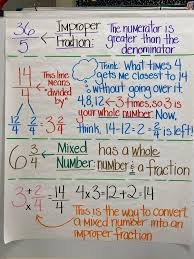 36
5
Improper
Fraction:
The numerator is
greater than the
denominator
14
4
This line
means
"divided
by"
Think: What times 4
gets me closest to 14
without going over it.
4,8,12 ← 3 times, so 3 is
your whole number. Now,
think, 14-12=2 = 2/4 is left!
12/4 2/4 = 3 2/4
6 3/4
Mixed
Number:
has a whole
number & a fraction
3 + 2
× 4
= 14/4
4x3=12+2=14
This is the way to convert
a mixed number into an
improper fraction